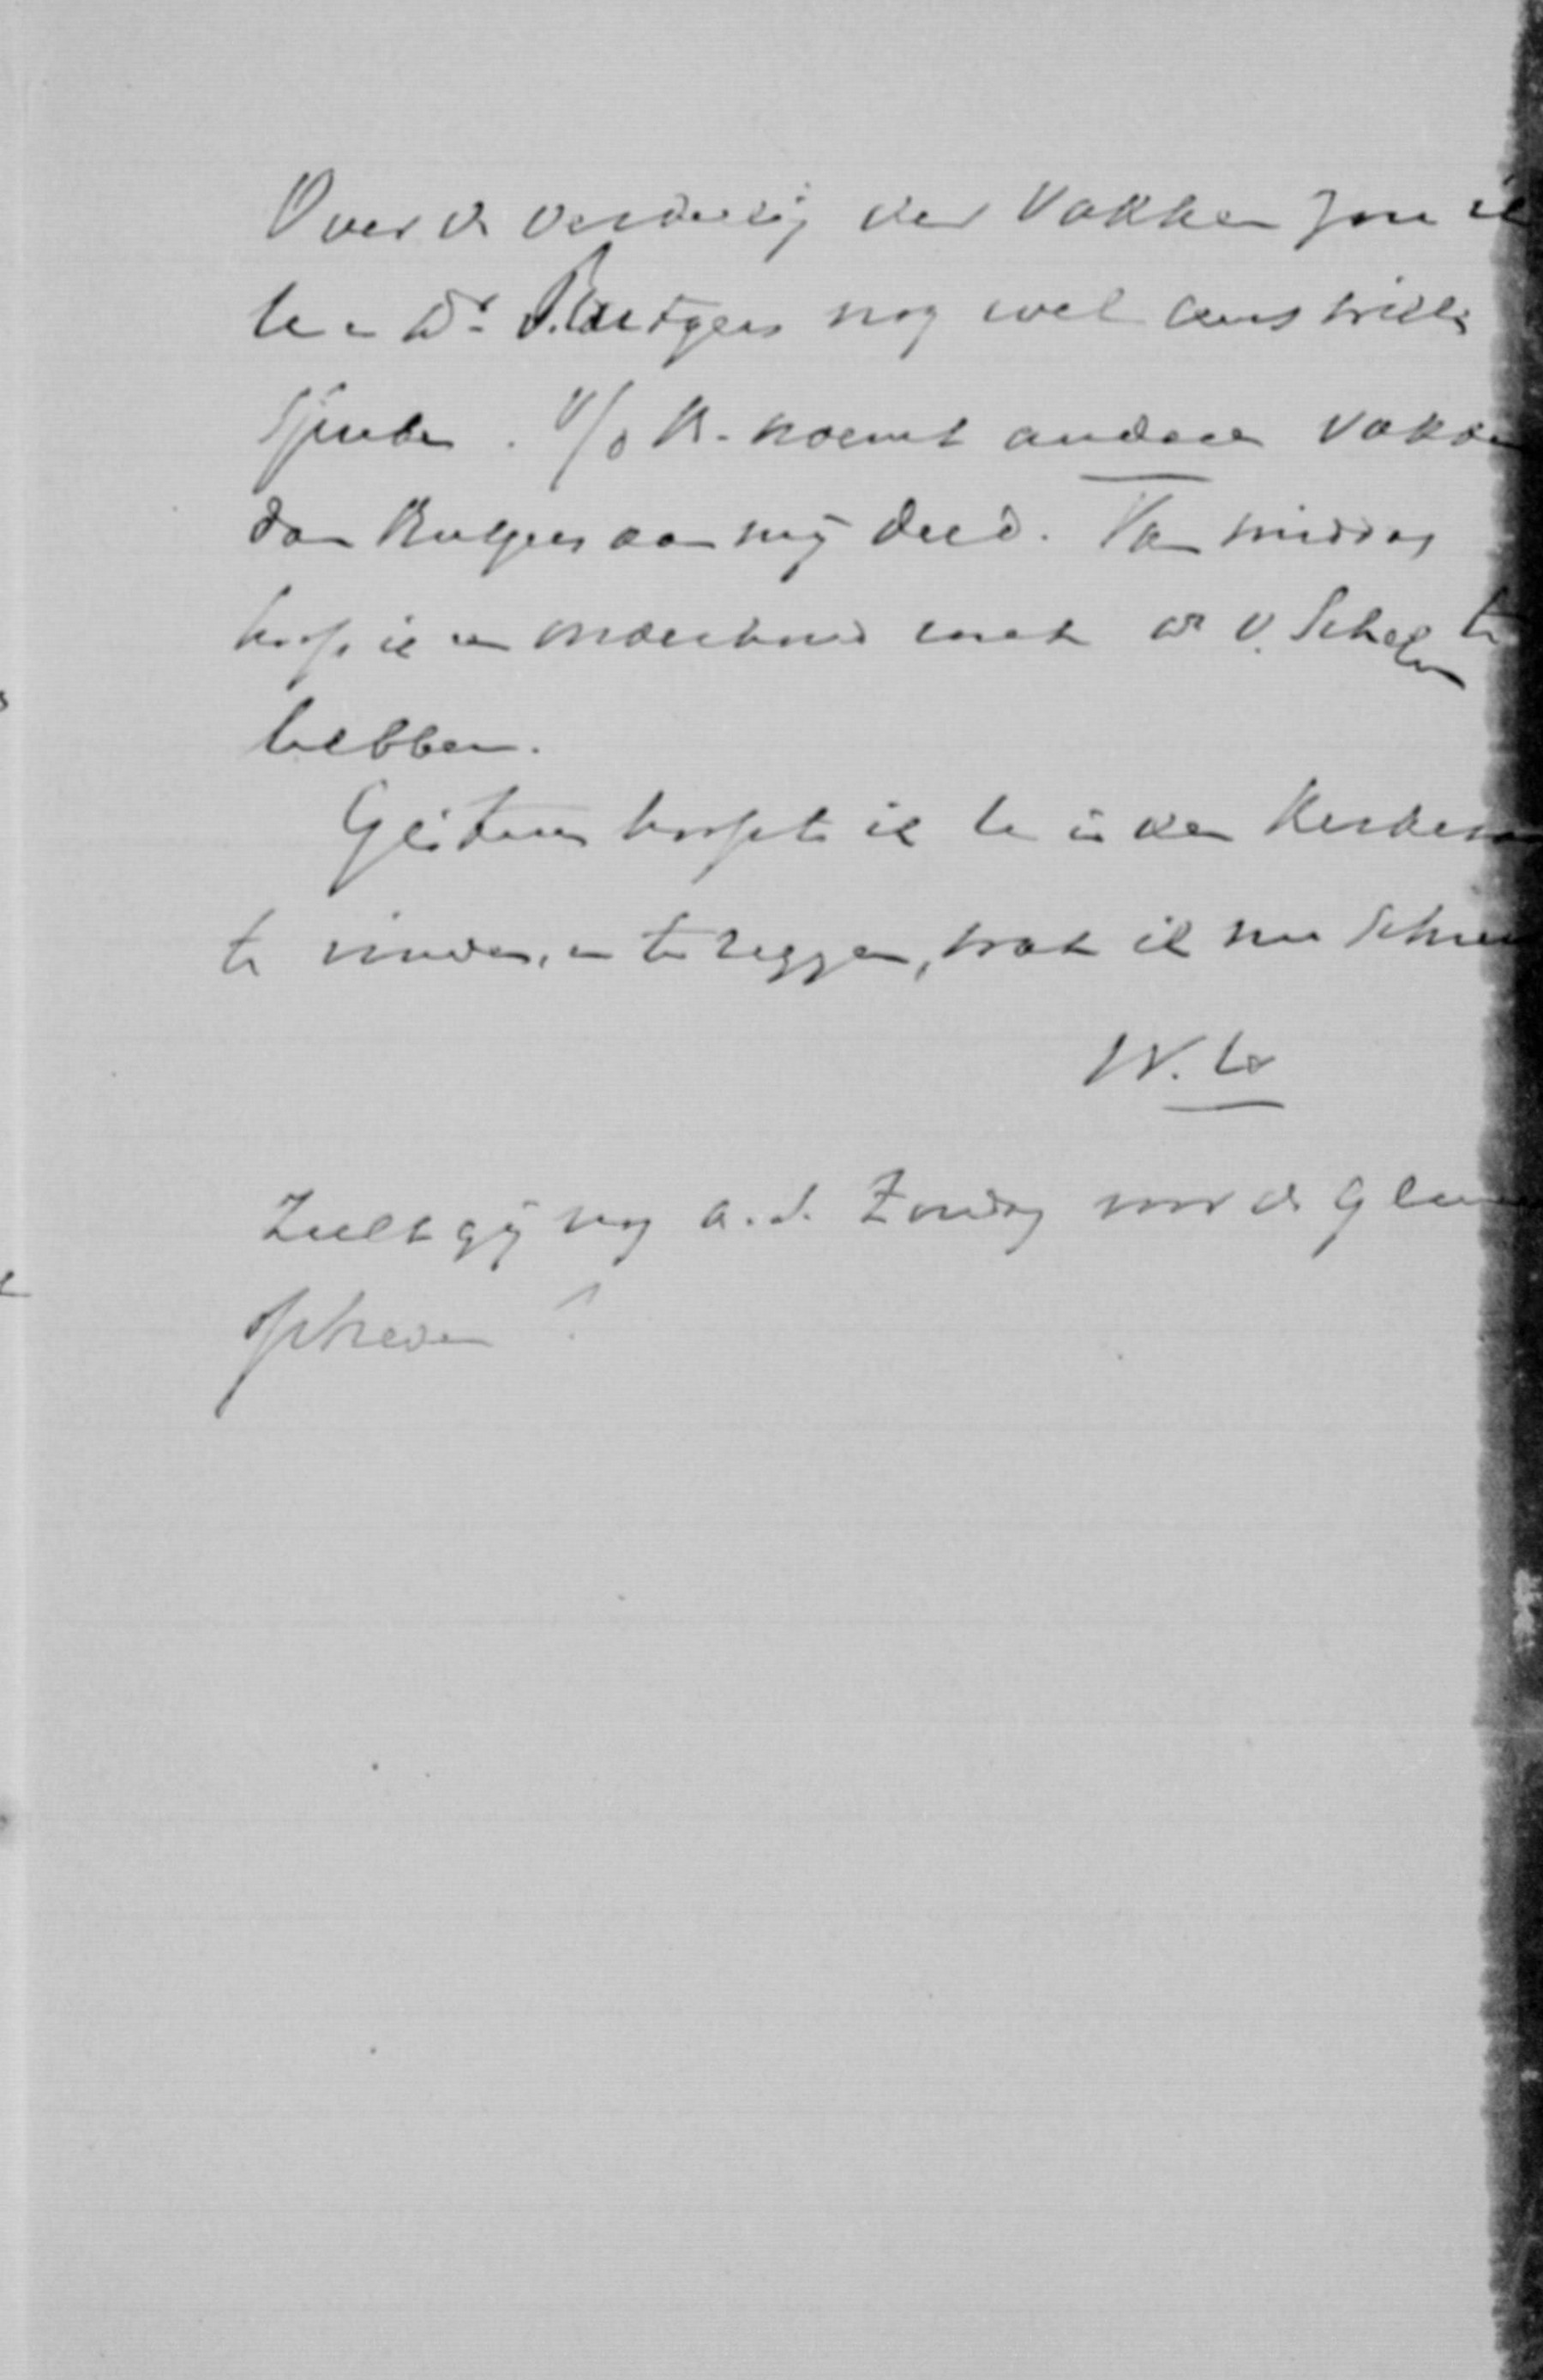 Over de verdeeling der Vakken zou ik
U en Dr. Rutgers nog wel eens willen
spreken. V/d K. noemt andere vakken
dan Rutgers aan mij deed. Van middag
hoop ik een onderhoud met dr v. Schelven te
hebben.
Gisteren hoopte ik U in den Kerkeraad
te vinden, en te zeggen, wat ik nu schreef
Zult gij nog a.s. Zondag voor de
optreden?